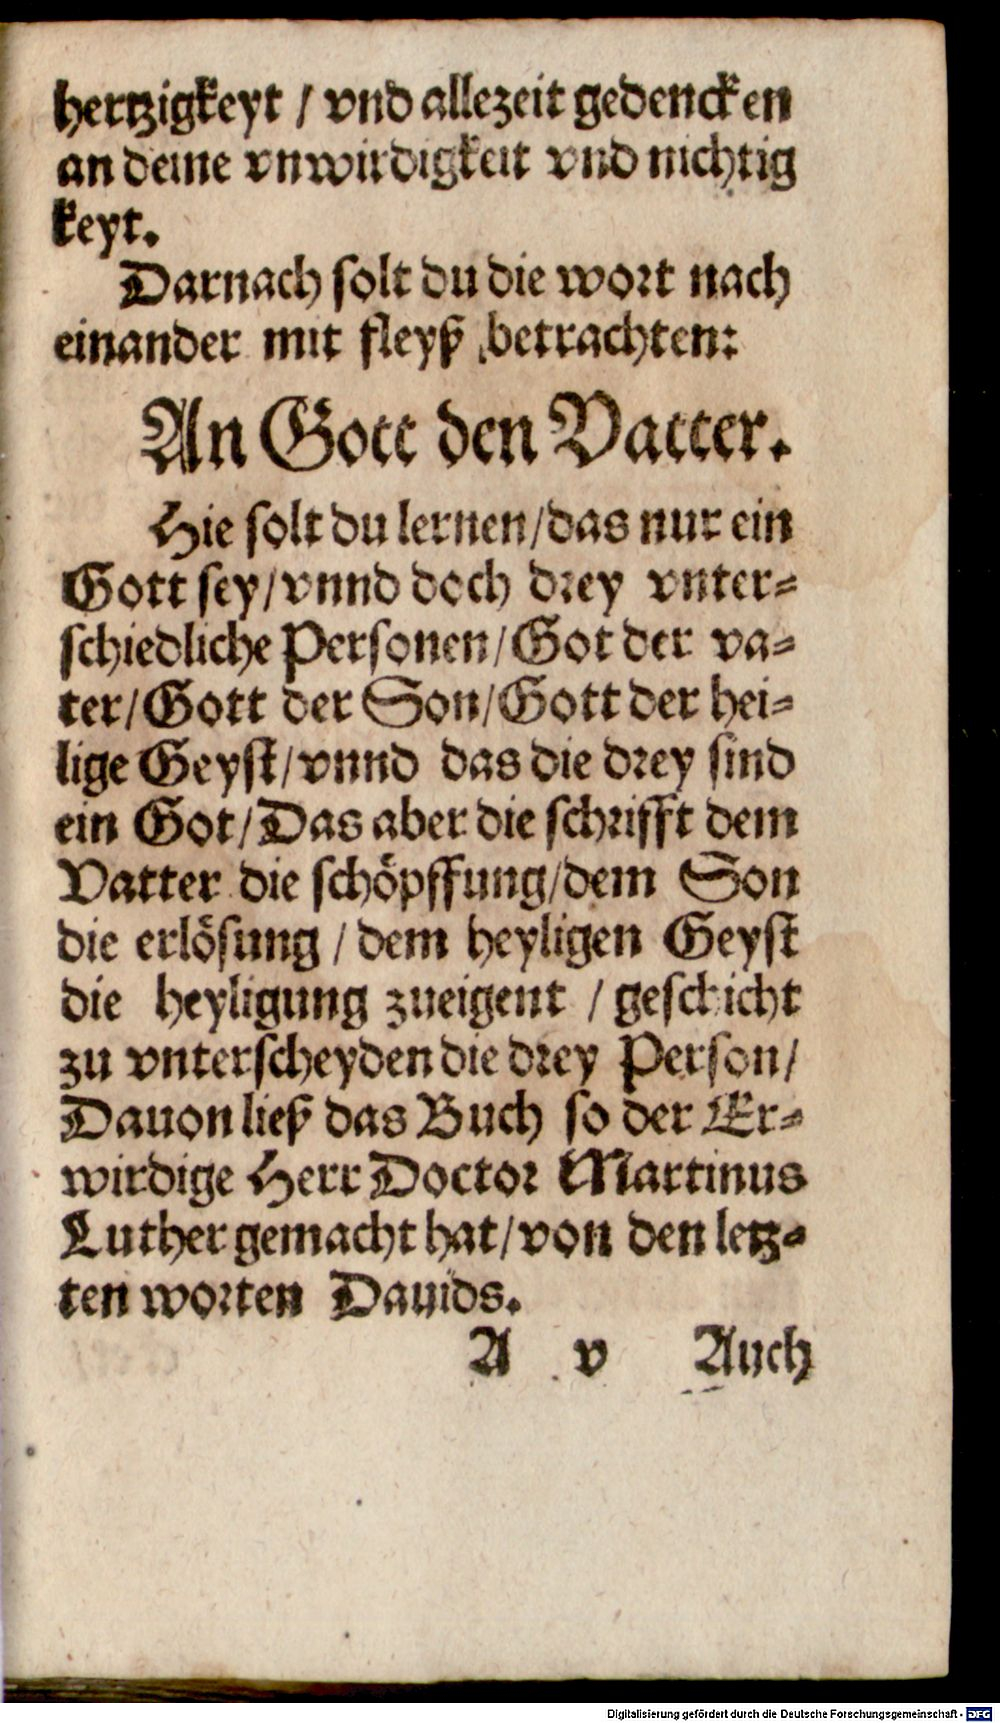 hertzigkeyt / vnd allezeit gedencken
an deine vnwirdigkeit vnd nichtig
keyt.
Darnach solt du die wort nach
einander mit fleyß betrachten:
An Gott den Vatter.
Hie solt du lernen/das nur ein
Gott sey/vnnd doch drey vnter=
schiedliche Personen/Got der va=
ter/Gott der Son/Gott der hei=
lige Geyst/vnnd das die drey sind
ein Got/Das aber die schrifft dem
Vatter die schöpffung/dem Son
die erlösung / dem heyligen Geyst
die heyligung zueigent / geschicht
zu vnterscheyden die drey Person/
Dauon ließ das Buch so der Er=
wirdige Herr Doctor Martinus
Luther gemacht hat/von den letz=
ten worten Dauids.
A v Auch
Digitalisierung gefördert durch die Deutsche Forschungsgemeinschaft - DFG